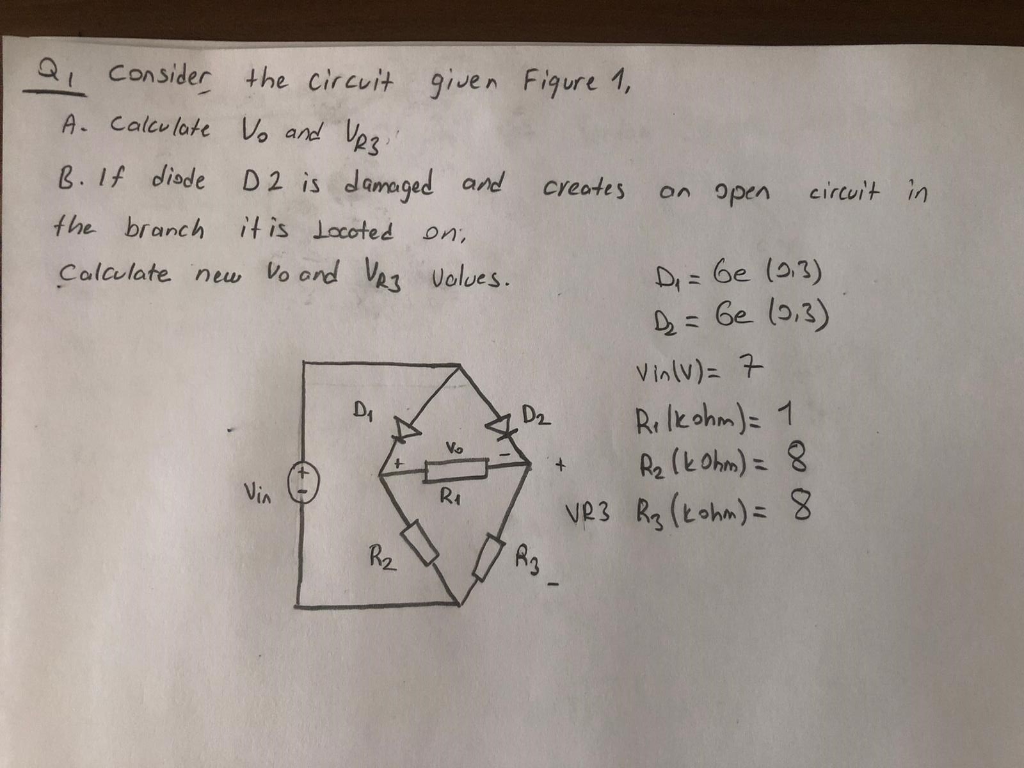 Q1 Consider the circuit given Figure 1,
A. Calculate Vo and VR3
B. If diode D2 is damaged and creates an open circuit in
the branch it is Located on,
Calculate new Vo and VR3 Values.
D1 = Ge (0,3)
D2 = Ge (0,3)
Vin(V) = 7
R1(kohm) = 1
R2 (kohm) = 8
R3 (kohm) = 8
D1
D2
Vo
+
-
+
R1
Vin
+
-
VR3
R2
R3
-